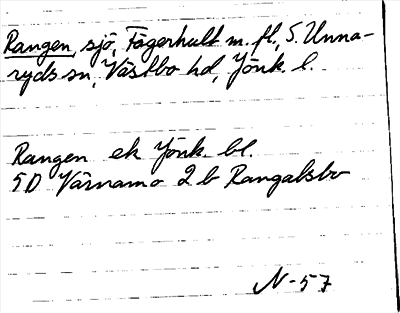 Rangen, sjö, Fägerhult m. fl., S. Unna-
ryds sn, Västbo hd, Jönk. l.
Rangen ek Jönk. bl.
5D Värnamo 2b Rangalsbo
N-57